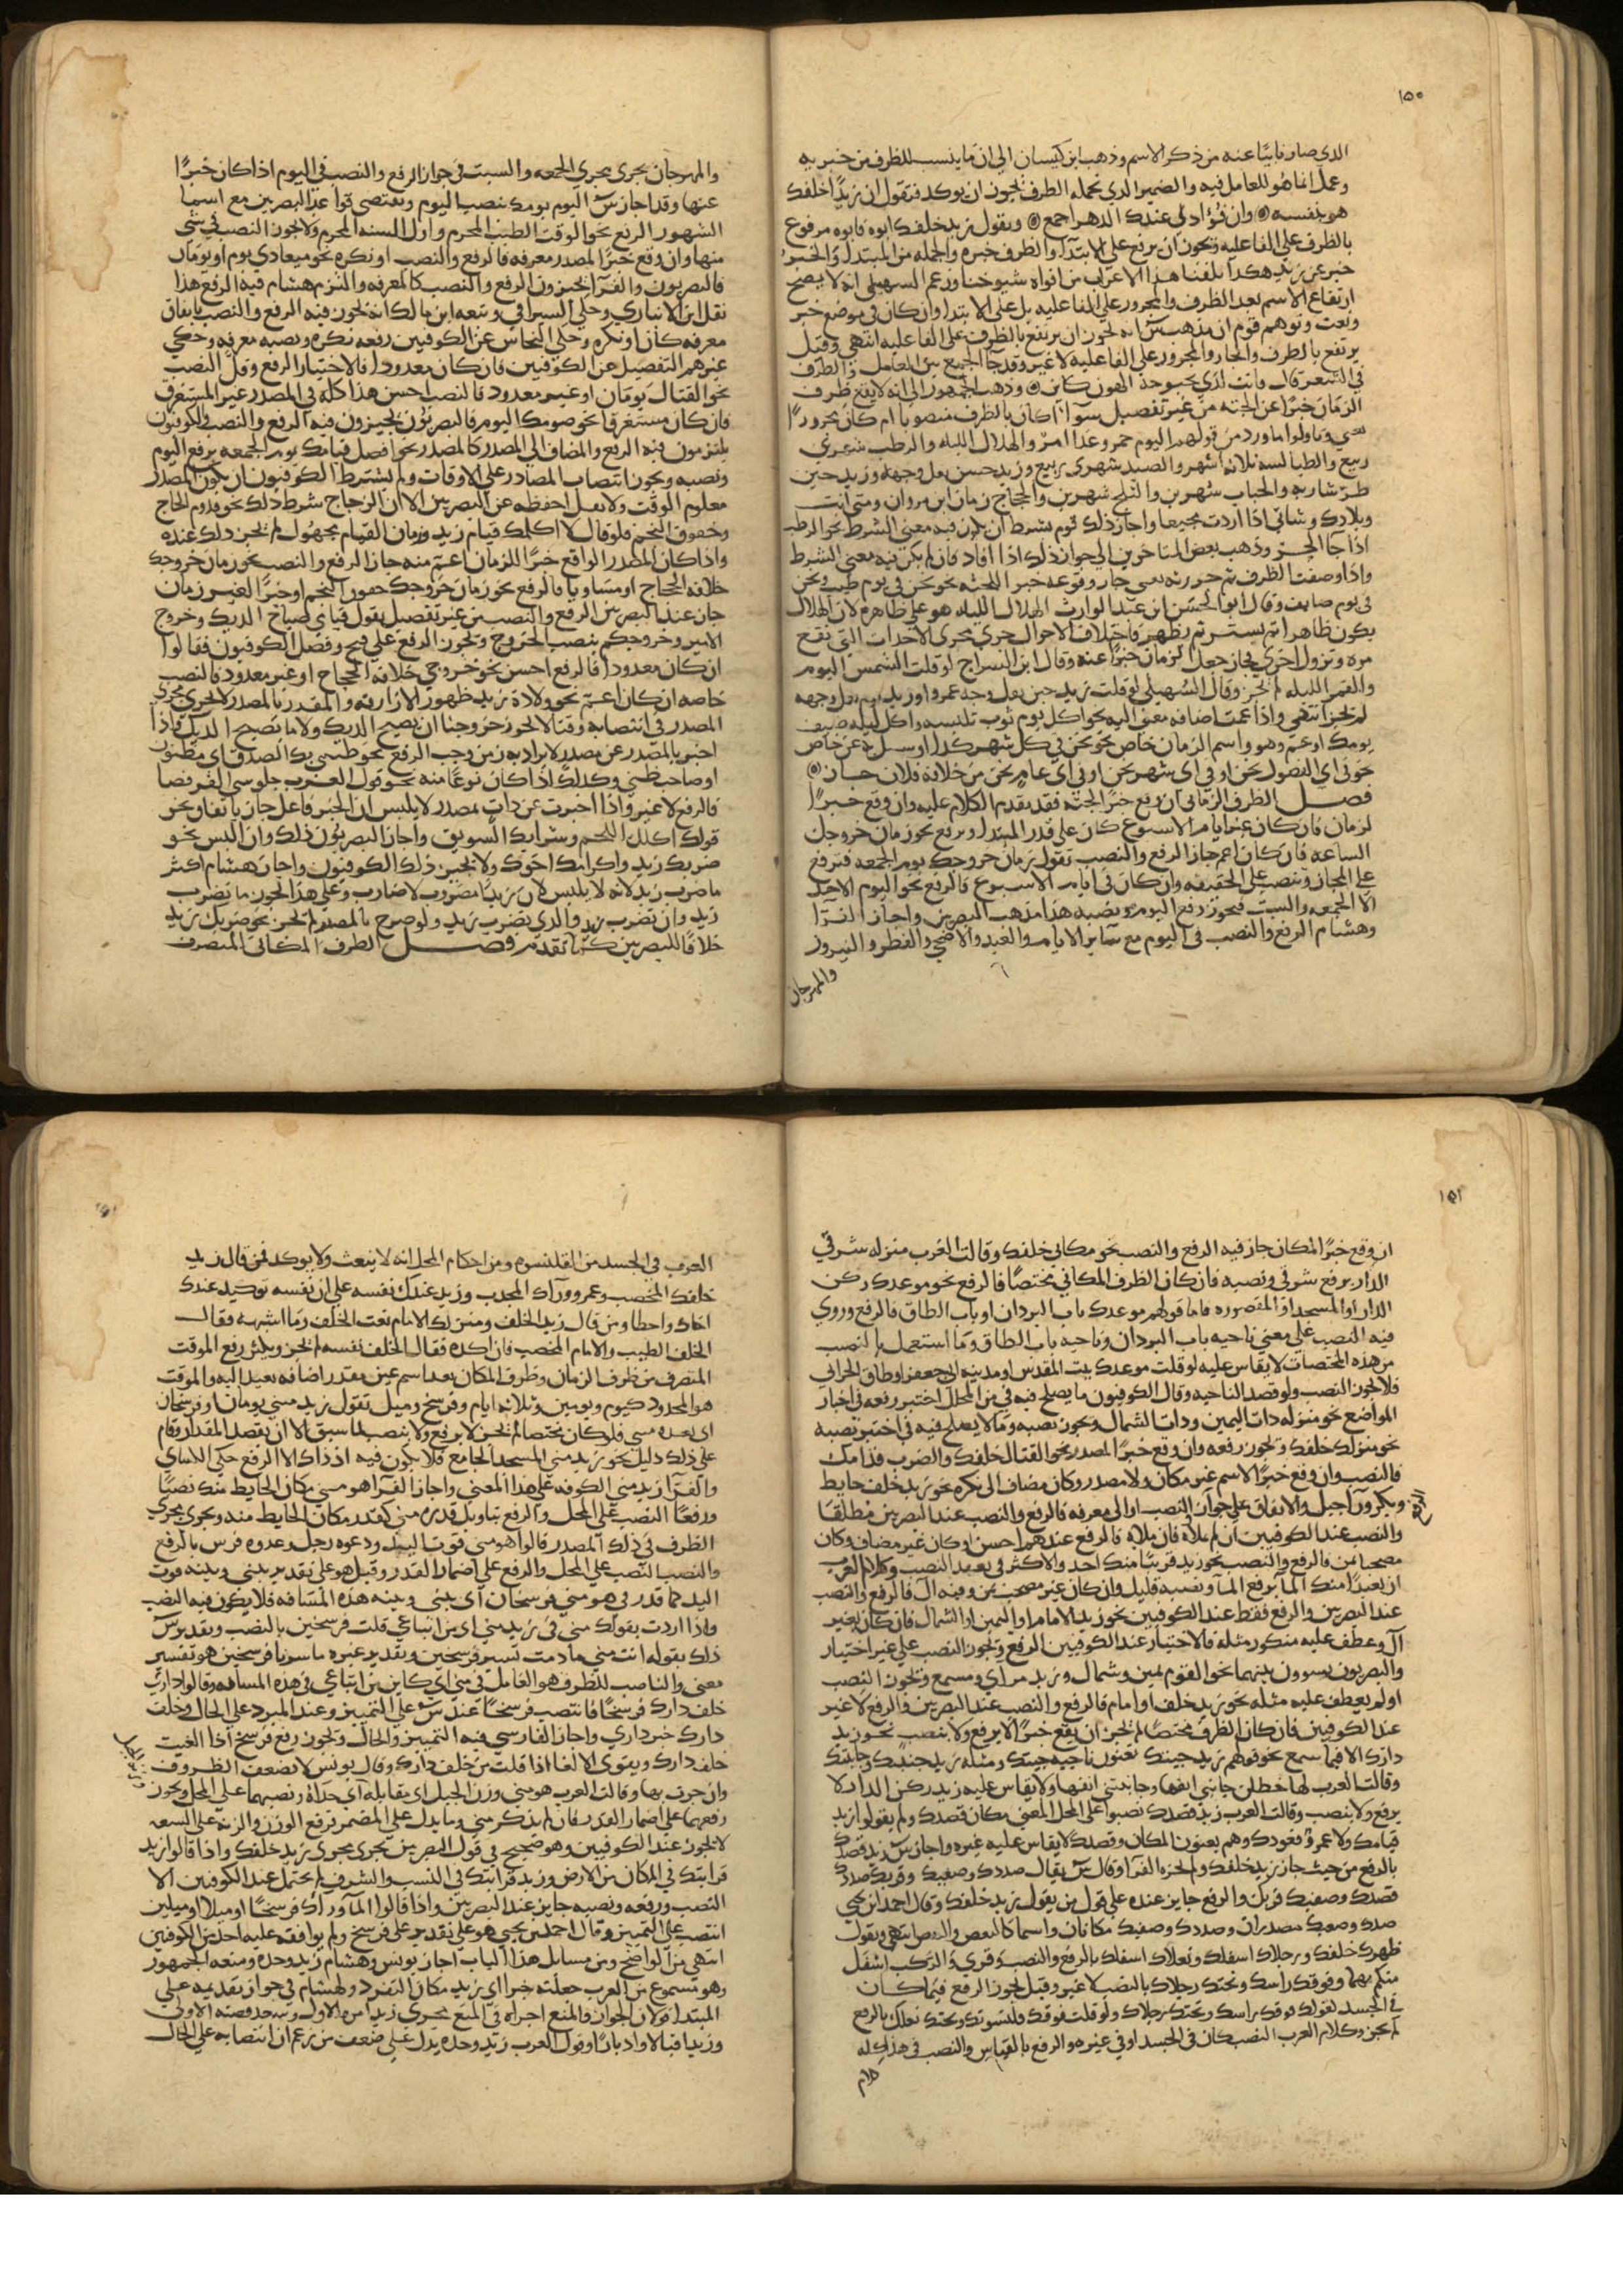 ١٥٠
الذي صار نايبا عنه من ذكر الاسم وذهب ابن كيسان الي ان ما ينسب للظرف من خبريه
وعمل انما هو للعامل فيه والضمير الذي تحمله الظرف يجوز ان يوكد فتقول ان زيدا خلفك
هو نفسه وان فؤادي عندك الدهر اجمع وتقول زيد خلفك ابوه فابوه مرفوع
بالظرف علي الفاعليه ويجوز ان يرفع علي الابتدا والظرف خبره والجمله من المبتدا والخبر
خبر عن زيد هكذا تلقفنا هذا الاعراب من افواه شيوخنا وزعم السهيلي انه لا يصح
ارتفاع الاسم بعد الظرف والمجرور علي الفاعليه بل علي الابتدا وان كان في موضع خبر
ونعت وتوهم قوم ان مذهب س انه يجوز ان يرتفع بالظرف علي الفاعليه انتهي وقيل
يرتفع بالظرف والجار والمجرور علي الفاعليه لا غير وقد جا الجمع بين العامل والظرف
في الشعر قال فانت لدي بحبوحة الهون كاين وذهب الجمهور الي انه لا يقع ظرف
الزمان خبرا عن الجثه من غير تفصيل سوا اكان بالظرف منصوبا ام كان مجرورا
بفي وتاولوا ما ورد من قولهم اليوم خمر وغدا امر والهلال الليله والرطب شهري
ربيع والطيالسه ثلاثه اشهر والصيد شهري ربيع وزيد حسن بقل وجهه وزيد حين
طر شاربه والجباب شهرين والثلج شهرين والحجاج زمان ابن مروان ومتي انت
وبلادك وشاتي اذا اردت مجيها واجاز ذلك قوم بشرط ان يكون فيه معني الشرط نحو الرطب
اذا جا الحر وذهب بعض المتاخرين الي جواز ذلك اذا افاد فان لم يكن فيه معني الشرط
واذا وصفت الظرف ثم جررته بفي جاز وقوعه خبرا للجثه نحو نحن في يوم طيب ونحن
في يوم صايف وقال ابو الحسن ابن عبد الوارث الهلال الليله هو علي ظاهره لان الهلال
يكون ظاهرا ثم يستتر ثم يظهر فاختلاف الاحوال جري مجري الاحداث التي تقع
مره وتزول اخري فجاز جعل الزمان خبرا عنه وقال ابن السراج لو قلت الشمس اليوم
والقمر الليله لم يجز وقال السهيلي لو قلت زيد حين بقل وجه عمرو او زيد يوم بقل وجهه
لم يجز انتهي واذا عمت اضافه معني اليه نحو اكل يوم ثوب تلبسه واكل ليله ضيف
يومك او عم وهو واسم الزمان خاص نحو نحن في كل شهر كذا او سيل به عن خاص
نحو في اي الفصول نحن او في اي شهر نحن او في اي عام نحن من خلافة فلان جاز
فصل الظرف الزماني ان وقع خبرا لجثه فقد تقدم الكلام عليه وان وقع خبرا
لزمان فان كان غير ايام الاسبوع كان علي قدر المبتدا ويرفع نحو زمان خروجك
الساعه فان كان اعم جاز الرفع والنصب تقول زمان خروجك يوم الجمعه فترفع
علي المجاز وتنصب علي الحقيقه وان كان في ايام الاسبوع فالرفع نحو اليوم الاحد
الا الجمعه والسبت فيجوز رفع اليوم ونصبه هذا مذهب البصريين واجاز الفرا
وهشام الرفع والنصب في اليوم مع ساير الايام والعيد والاضحي والفطر والنيروز
والمهرجان
والمهرجان يجري مجري الجمعه والسبت في جواز الرفع والنصب في اليوم اذا كان خبرا
عنها وقد اجاز س اليوم يومك بنصب اليوم وتقتضي قواعد البصريين مع اسما
الشهور الرفع نحو الوقت الطيب المحرم واول السنه المحرم ولا يجوز النصب في شي
منها وان وقع خبرا المصدر معرفه فالرفع والنصب او نكره نحو ميعادي يوم او يومان
فالبصريون والفرا يجيزون الرفع والنصب كالمعرفه والتزم هشام فيه الرفع هذا
نقل ابن الانباري وحكي السيرافي وتبعه ابن مالك انه يجوز فيه الرفع والنصب باتفاق
معرفه كان او نكره وحكي النحاس عن الكوفيين رفعه نكره ونصبه معرفه وحكي
غيرهم التفصيل عن الكوفيين فان كان معدودا فالاختيار الرفع وقل النصب
نحو القتال يومان او غير معدود فالنصب احسن هذا كله في المصدر غير المستغرق
فان كان مستغرقا نحو صومك اليوم فالبصريون يجيزون فيه الرفع والنصب والكوفيون
يلتزمون فيه الرفع والمضاف الي المصدر كالمصدر نحو افضل قيامك يوم الجمعه برفع اليوم
ونصبه ويجوز انتصاب المصادر علي الاوقات ولم يشترط الكوفيون ان يكون المصدر
معلوم الوقت ولا نعل احفظه عن البصريين الا ان الزجاج شرط ذلك نحو قدوم الحاج
وخفوق النجم فلو قال لا اكلمك قيام زيد وزمان القيام مجهول لم يجز ذلك عنده
واذا كان المصدر الواقع خبرا للزمان اعم منه جاز الرفع والنصب نحو زمان خروجك
خلافه الحجاج او مساويا فالرفع نحو زمان خروجك خفوق النجم او خبرا لغير زمان
جاز عند البصريين الرفع والنصب من غير تفصيل يقول قيامي صياح الديك وخروج
الامير وخروجكم بنصب الخروج ويجوز الرفع علي قبح وفصل الكوفيون فقالوا
ان كان معدودا فالرفع احسن نحو خروجي خلافه الحجاج او غير معدود فالنصب
خاصه ان كان اعم نحو ولادة زيد ظهور الازارقه والمقدر بالمصدر لا يجري مجري
المصدر في انتصابه وقتا لا يجوز خروجنا ان يصيح الديك ولا ما يصيح الديك واذا
اخبر بالمصدر عن مصدر لا يراد به زمن وجب الرفع نحو ظني بك الصدق اي مظنون
او صاحب ظني وكذلك اذا كان نوعا منه نحو قول العرب جلوسي القرفصا
فالرفع لا غير واذا اخبرت عن ذات بمصدر لا يلبس ان الخبر فاعل جاز باتفاق نحو
قولك اكلك اللحم وشرابك السويق واجاز البصريون ذلك وان البس نحو
ضربك زيد واكرامك اخوك ولا يجيز ذلك الكوفيون واجاز هشام اكثر
ما ضرب زيد لانه لا يلبس لان زيدا مضروب لا ضارب وعلي هذا يجوز ما تضرب
زيد وان تضرب زيد والذي تضرب زيد ولو صرح بالمصدر لم يجز نحو ضربك زيد
خلافا للبصريين كما تقدم فصل الظرف المكاني المتصرف
١٥١
ان وقع خبرا لمكان جاز فيه الرفع والنصب نحو مكاني خلفك وقالت العرب منزله شرقي
الدار برفع شرقي ونصبه فان كان الظرف المكاني مختصا فالرفع نحو موعدك ركن
الدار او المسجد او المقصوره فاما قولهم موعدك باب البردان او باب الطاق فالرفع وروي
فيه النصب علي معني ناحيه باب البردان وناحيه باب الطاق وما استعمل بالنصب
من هذه المختصات لا يقاس عليه لو قلت موعدك بيت المقدس او مدينه ابي جعفر او طاق الحراني
فلا يجوز النصب ولو قصد الناحيه وقال الكوفيون ما يصلح فيه في من المحال اختير رفعه في اخبار
المواضع نحو منزله ذات اليمين وذات الشمال ويجوز نصبه وما لا يصلح فيه في اختير نصبه
نحو منزلك خلفك ويجوز رفعه وان وقع خبرا لمصدر نحو القتال خلفك والضرب قدامك
فالنصب وان وقع خبرا لاسم غير مكان ولا مصدر وكان مضاف الي نكره نحو زيد خلف حايط
وبكر ورا جبل والاتفاق علي جواز النصب او الي معرفه فالرفع والنصب عند البصريين مطلقا
والنصب عند الكوفيين ان لم يملاه فان ملاه فالرفع عندهم احسن او كان غير مضاف وكان
مصحبا من فالرفع والنصب نحو زيد قريبا منك احد والاكثر في بعيد النصب وكلام العرب
ان بعيدا منك الما برفع الما ونصبه قليل وان كان غير مصحب من وفيه ال فالرفع والنصب
عند البصريين والرفع فقط عند الكوفيين نحو زيد الامام او اليمين او الشمال فان كان بغير
ال وعطف عليه منكور مثله فالاختيار عند الكوفيين الرفع ويجوز النصب علي غير اختيار
والبصريون يسوون بينهما نحو القوم يمين وشمال وزيد مراي ومسمع ويجوز النصب
او لم يعطف عليه مثله نحو زيد خلف او امام فالرفع والنصب عند البصريين والرفع لا غير
عند الكوفيين فان كان الظرف مختصا لم يجز ان يقع خبرا الا برفع ولا ينصب نحو زيد
دارك الا فيما سمع نحو قولهم زيد جنبك تعنون ناحيه جنبك ومثله زيد جنبك وجانبك
وقالت العرب لها خطان جانبي انفها وجانبتي انفها ولا يقاس عليه زيد ركن الدار لا
يرفع ولا ينصب وقالت العرب زيد قصدك نصبوا علي المحل المعني مكان قصدك ولم يقولوا زيد
قيامك ولا عمرو قعودك وهم يعنون المكان وقصدك لا يقاس عليه غيره واجاز س زيد قصدك
بالرفع من حيث جاز زيد خلفك ولم يجزه الفرا وقال س يقال صددك وصقبك وقربك صددك
قصدك وصقبك قربك والرفع جايز عنده علي قول من يقول زيد خلفك وقال احمد ابن يحيي
صددك وصقبك مصدران وصددك وصقبك مكانان واسما كالنقص والنقص انتهي وتقول
ظهرك خلفك ورجلاك اسفلك ونعلاك اسفلك بالرفع والنصب وقري والركب اسفل
منكم بهما وفوقك راسك وتحتك رجلاك بالنصب لا غير وقيل يجوز الرفع فيما كان
في الجسد تقول فوقك راسك وتحتك رجلاك ولو قلت فوقك قلنسوتك وتحتك نعلك بالرفع
لم يجز وكلام العرب النصب كان في الجسد او في غيره والرفع بالقياس والنصب في هذا كله
كلام
العرب في الجسد من القلنسوه ومن احكام المحل انه لا ينعت ولا يوكد فمن قال زيد
خلفك المخصب وعمرو وراك المجدب وزيد عندك نفسه علي ان نفسه توكيد عندك
احال واخطا ومن قال زيد الخلف ومنزلك الامام نعت الخلف وما اشبهه فقال
الخلف الطيب والامام المخصب فان اكده فقال الخلف نفسه لم يجز ويكثر رفع الموقت
المتصرف من ظرف الزمان وظرف المكان بعد اسم عين مقدر اضافه بعيد اليه والموقت
هو المحدود كيوم ويومين وثلاثه ايام وفرسخ وميل تقول زيد مني يومان او فرسخان
اي بعده مني فلو كان مختصا لم يجز لا برفع ولا بنصب لما سبق الا ان يقصد المقدار وقام
علي ذلك دليل نحو زيد مني المسجد الجامع فلا يكون فيه اذ ذاك الا الرفع حكي الكساي
والفرا زيد مني الكوفه علي هذا المعني واجاز الفرا هو مني مكان الحايط منك نصبا
ورفعا النصب علي المحل والرفع بتاويل قدره مني كقدر مكان الحايط منه ويجري مجري
الظرف في ذلك المصدر قالوا هو مني فوت اليد ودعوه رجل وعدوه فرس بالرفع
والنصب النصب علي المحل والرفع علي اضمار القدر وقيل هو علي تقدير بيني وبينه فوت
اليد كما قدر في هو مني فرسخان اي بيني وبينه هذه المسافه فلا يكون فيه النصب
واذا اردت بقولك مني في زيد مني اي من اتباعي قلت فرسخين بالنصب وتقدير س
ذلك بقوله انت مني ما دمت تسير فرسخين وتقدير غيره ما سرنا فرسخين هو تفسير
معني والناصب للظرف هو العامل في مني اي كاين من اتباعي في هذه المسافه وقالوا داري
خلف دارك فرسخا فانتصب فرسخا عند س علي التمييز وعند المبرد علي الحال وخلف
دارك خبر داري واجاز الفارسي فيه التمييز والحال ويجوز رفع فرسخ اذا الغيت
خلف دارك ويقوي الالغا اذا قلت من خلف دارك وقال يونس لا تضعف الظروف
وان جرت بها وقالت العرب هو مني وزن الجبل اي مقابله اي حذاه ونصبهما علي المحل ويجوز
رفعهما علي اضمار القدر فان لم يذكر مني وما يدل علي المضمر ترفع الوزن والزنه علي السعه
لا يجوز عند الكوفيين وهو صحيح في قول البصريين يجري مجري زيد خلفك واذا قالوا زيد
قرابتك في المكان من الارض وزيد قرابتك في النسب والشرف لم يحتمل عند الكوفيين الا
النصب ورفعه ونصبه جايز عند البصريين واذا قالوا الما وراك فرسخا او ميلا او ميلين
انتصب علي التمييز وقال احمد بن يحيي هو علي تقدير علي فرسخ ولم يوافقه عليه احد من الكوفيين
انتهي من الواضح ومن مسايل هذا الباب اجاز يونس وهشام زيد وحده ومنعه الجمهور
وهو مسموع من العرب جعلته خبرا اي زيد مكان التفرد ولهشام في جواز تقديمه علي
المبتدا قولان الجواز والمنع اجراه في المنع مجري زيد امره الاول وسعد قصته الاولي
وزيد اقبالا وادبارا وقول العرب زيد وحده يدل علي ضعف من زعم ان انتصابه علي الحال